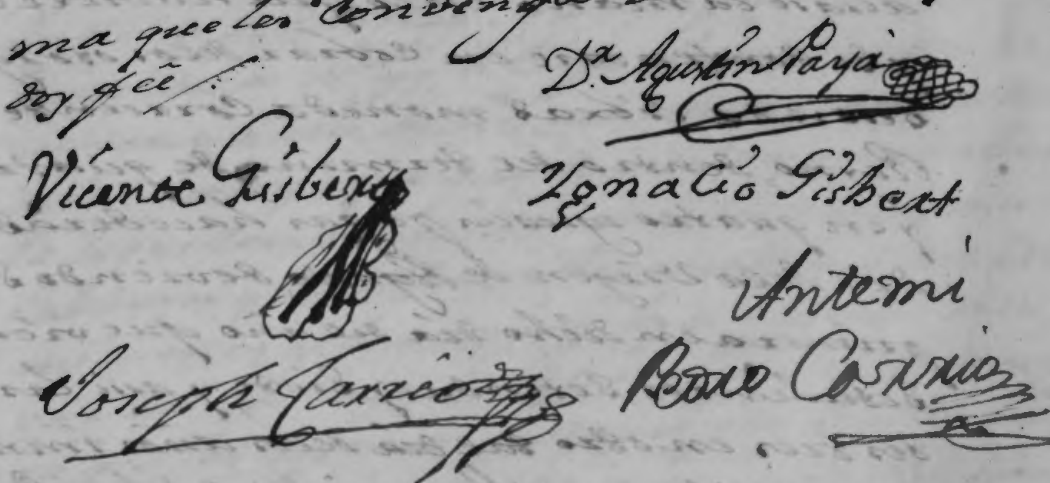 ma que les Convenga
doy feê
Dn. Agustin Paya
Vicente Gisbert
Ygnacio Gisbert
Antemi
Joseph Carrió
Pedro Carrio